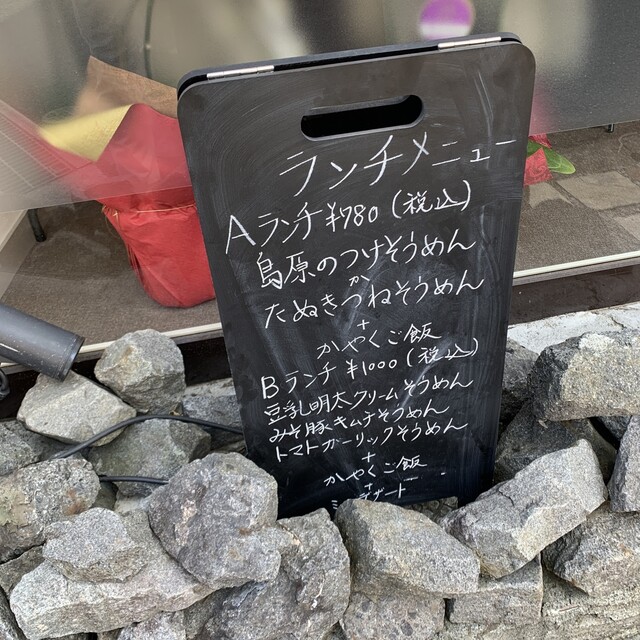 ランチメニュー
Aランチ ¥780(税込)
島原のつけそうめん
か
たぬきつねそうめん
+
かやくご飯
Bランチ ¥1000(税込)
豆乳明太クリームそうめん
みそ豚キムチそうめん
トマトガーリックそうめん
+
かやくご飯
+